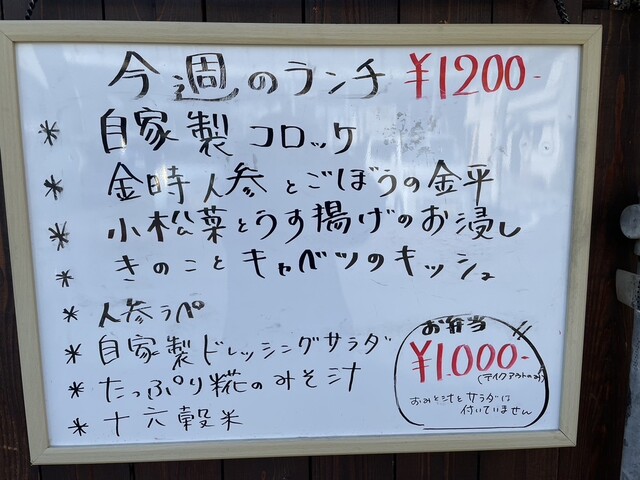 今週のランチ ¥1200-
* 自家製コロッケ
* 金時人参とごぼうの金平
* 小松菜とうす揚げのお浸し
* きのことキャベツのキッシュ
* 人参ラペ
* 自家製ドレッシングサラダ
* たっぷり糀のみそ汁
* 十六穀米
お弁当
¥1.000-
(テイクアウトのみ)
おみそ汁とサラダは
付いていません